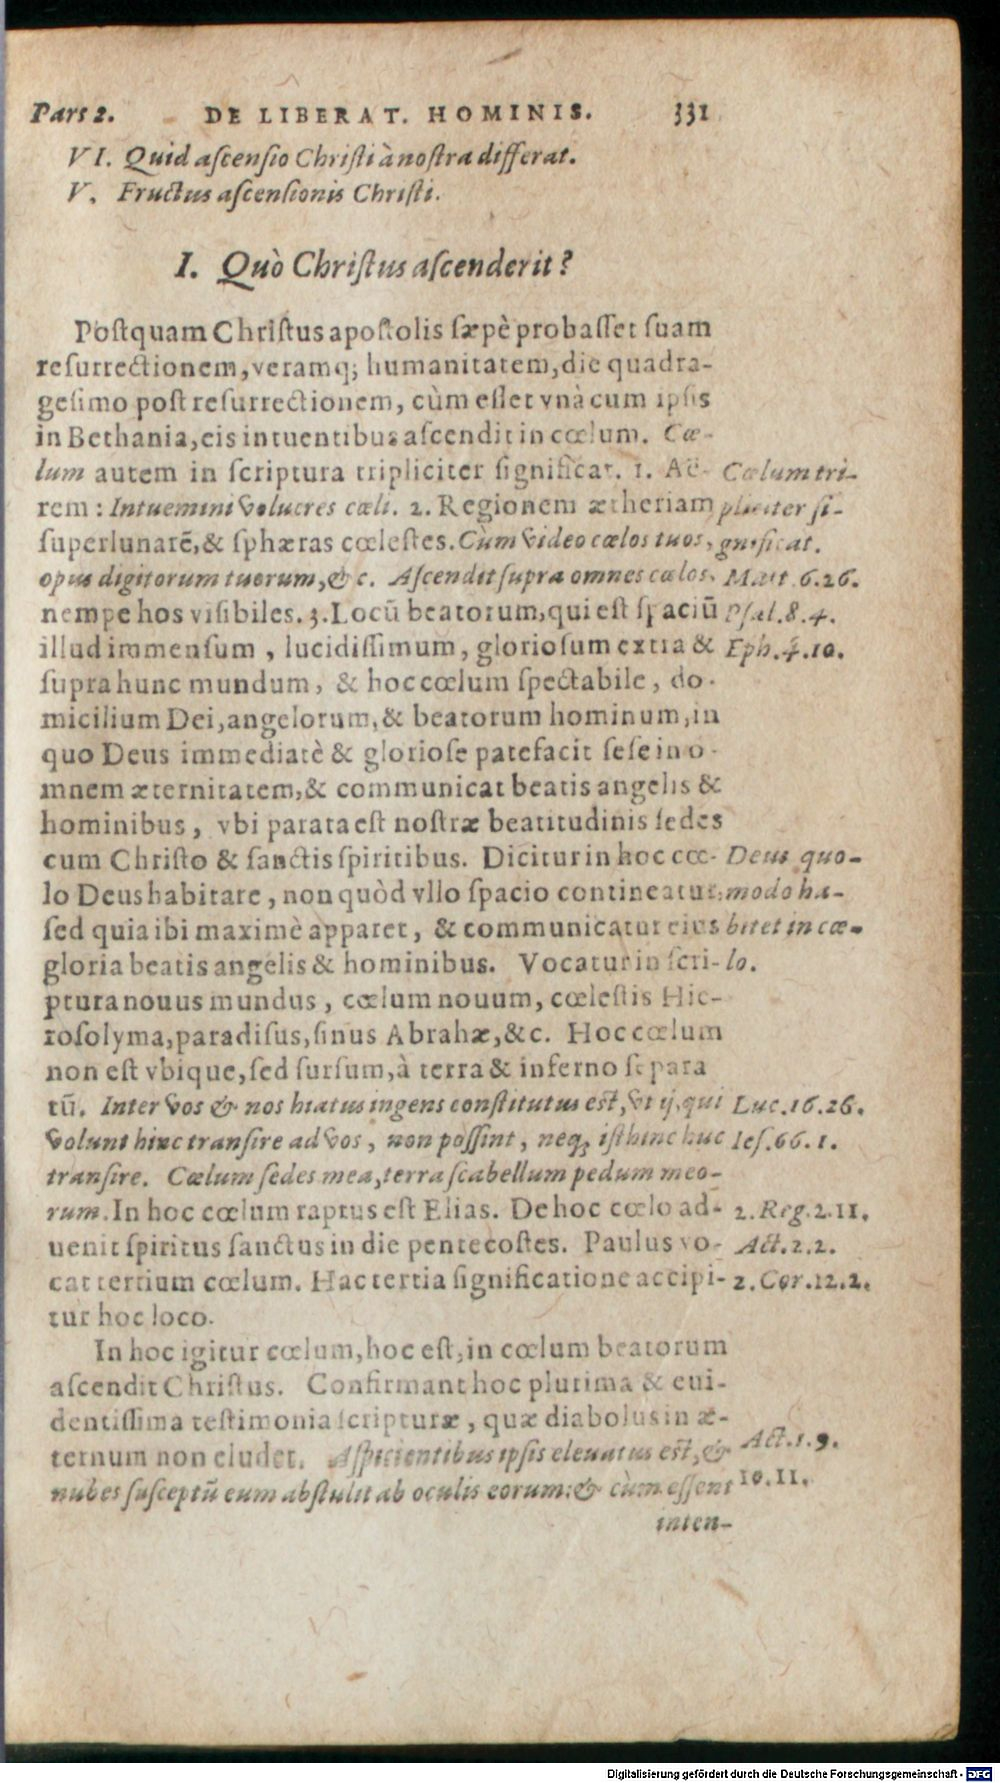 Pars 2. DE LIBERAT. HOMINIS. 331
VI. Quid ascensio Christi à nostra differat.
V. Fructus ascensionis Christi.
I. Quò Christus ascenderit?
Postquam Christus apostolis sæpè probasset suam
resurrectionem, veramq; humanitatem, die quadra-
gesimo post resurrectionem, cùm esset vnà cum ipsis
in Bethania, eis intuentibus ascendit in cœlum. Cœ-
lum autem in scriptura tripliciter significat. 1. Aë- Cœlum tri-
rem: Intuemini volucres cœli. 2. Regionem ætheriam pliciter si-
superlunarē, & sphæras cœlestes. Cùm video cœlos tuos, gnificat.
opus digitorum tuorum, & c. Ascendit supra omnes cœlos, Matt. 6.26.
nempe hos visibiles. 3. Locū beatorum, qui est spaciū Psal.8.4.
illud immensum, lucidissimum, gloriosum extra & Eph.4.10.
supra hunc mundum, & hoc cœlum spectabile, do-
micilium Dei, angelorum, & beatorum hominum, in
quo Deus immediatè & gloriose patefacit sese in o-
mnem æternitatem, & communicat beatis angelis &
hominibus, vbi parata est nostræ beatitudinis sedes
cum Christo & sanctis spiritibus. Dicitur in hoc cœ- Deus quo-
lo Deus habitare, non quòd vllo spacio contineatur, modo ha-
sed quia ibi maximè apparet, & communicatur eius bitet in cœ-
gloria beatis angelis & hominibus. Vocatur in scri- lo.
ptura nouus mundus, cœlum nouum, cœlestis Hie-
rosolyma, paradisus, sinus Abrahæ, &c. Hoc cœlum
non est vbique, sed sursum, à terra & inferno separa
tū. Inter vos & nos hiatus ingens constitutus est, vt ij, qui Luc.16.26.
volunt hinc transire ad vos, non possint, neq; isthinc huc Ies.66.1.
transire. Cœlum sedes mea, terra scabellum pedum meo-
rum. In hoc cœlum raptus est Elias. De hoc cœlo ad- 2.Reg.2.11.
uenit spiritus sanctus in die pentecostes. Paulus vo- Act.2.2.
cat tertium cœlum. Hac tertia significatione accipi- 2.Cor.12.2.
tur hoc loco.
In hoc igitur cœlum, hoc est, in cœlum beatorum
ascendit Christus. Confirmant hoc plurima & eui-
dentissima testimonia scripturæ, quæ diabolus in æ-
ternum non eludet. Aspicientibus ipsis eleuatus est, & Act.1.9.
nubes susceptū eum abstulit ab oculis eorum: & cùm essent 10.11.
inten-
Digitalisierung gefördert durch die Deutsche Forschungsgemeinschaft - DFG